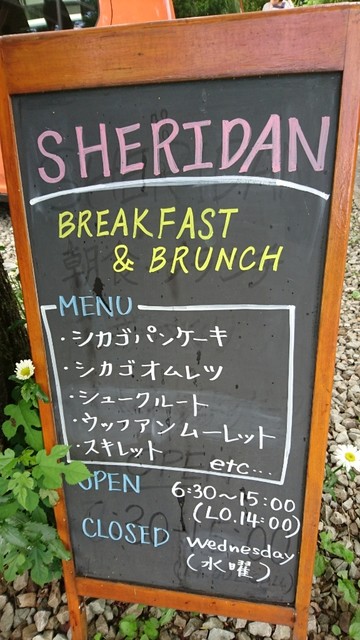 SHERIDAN
BREAKFAST
& BRUNCH
MENU
・シカゴパンケーキ
・シカゴオムレツ
・シュークルート
・ウッフアンムーレット
・スキレット etc...
OPEN 6:30〜15:00
(LO.14:00)
CLOSED Wednesday
(水曜)